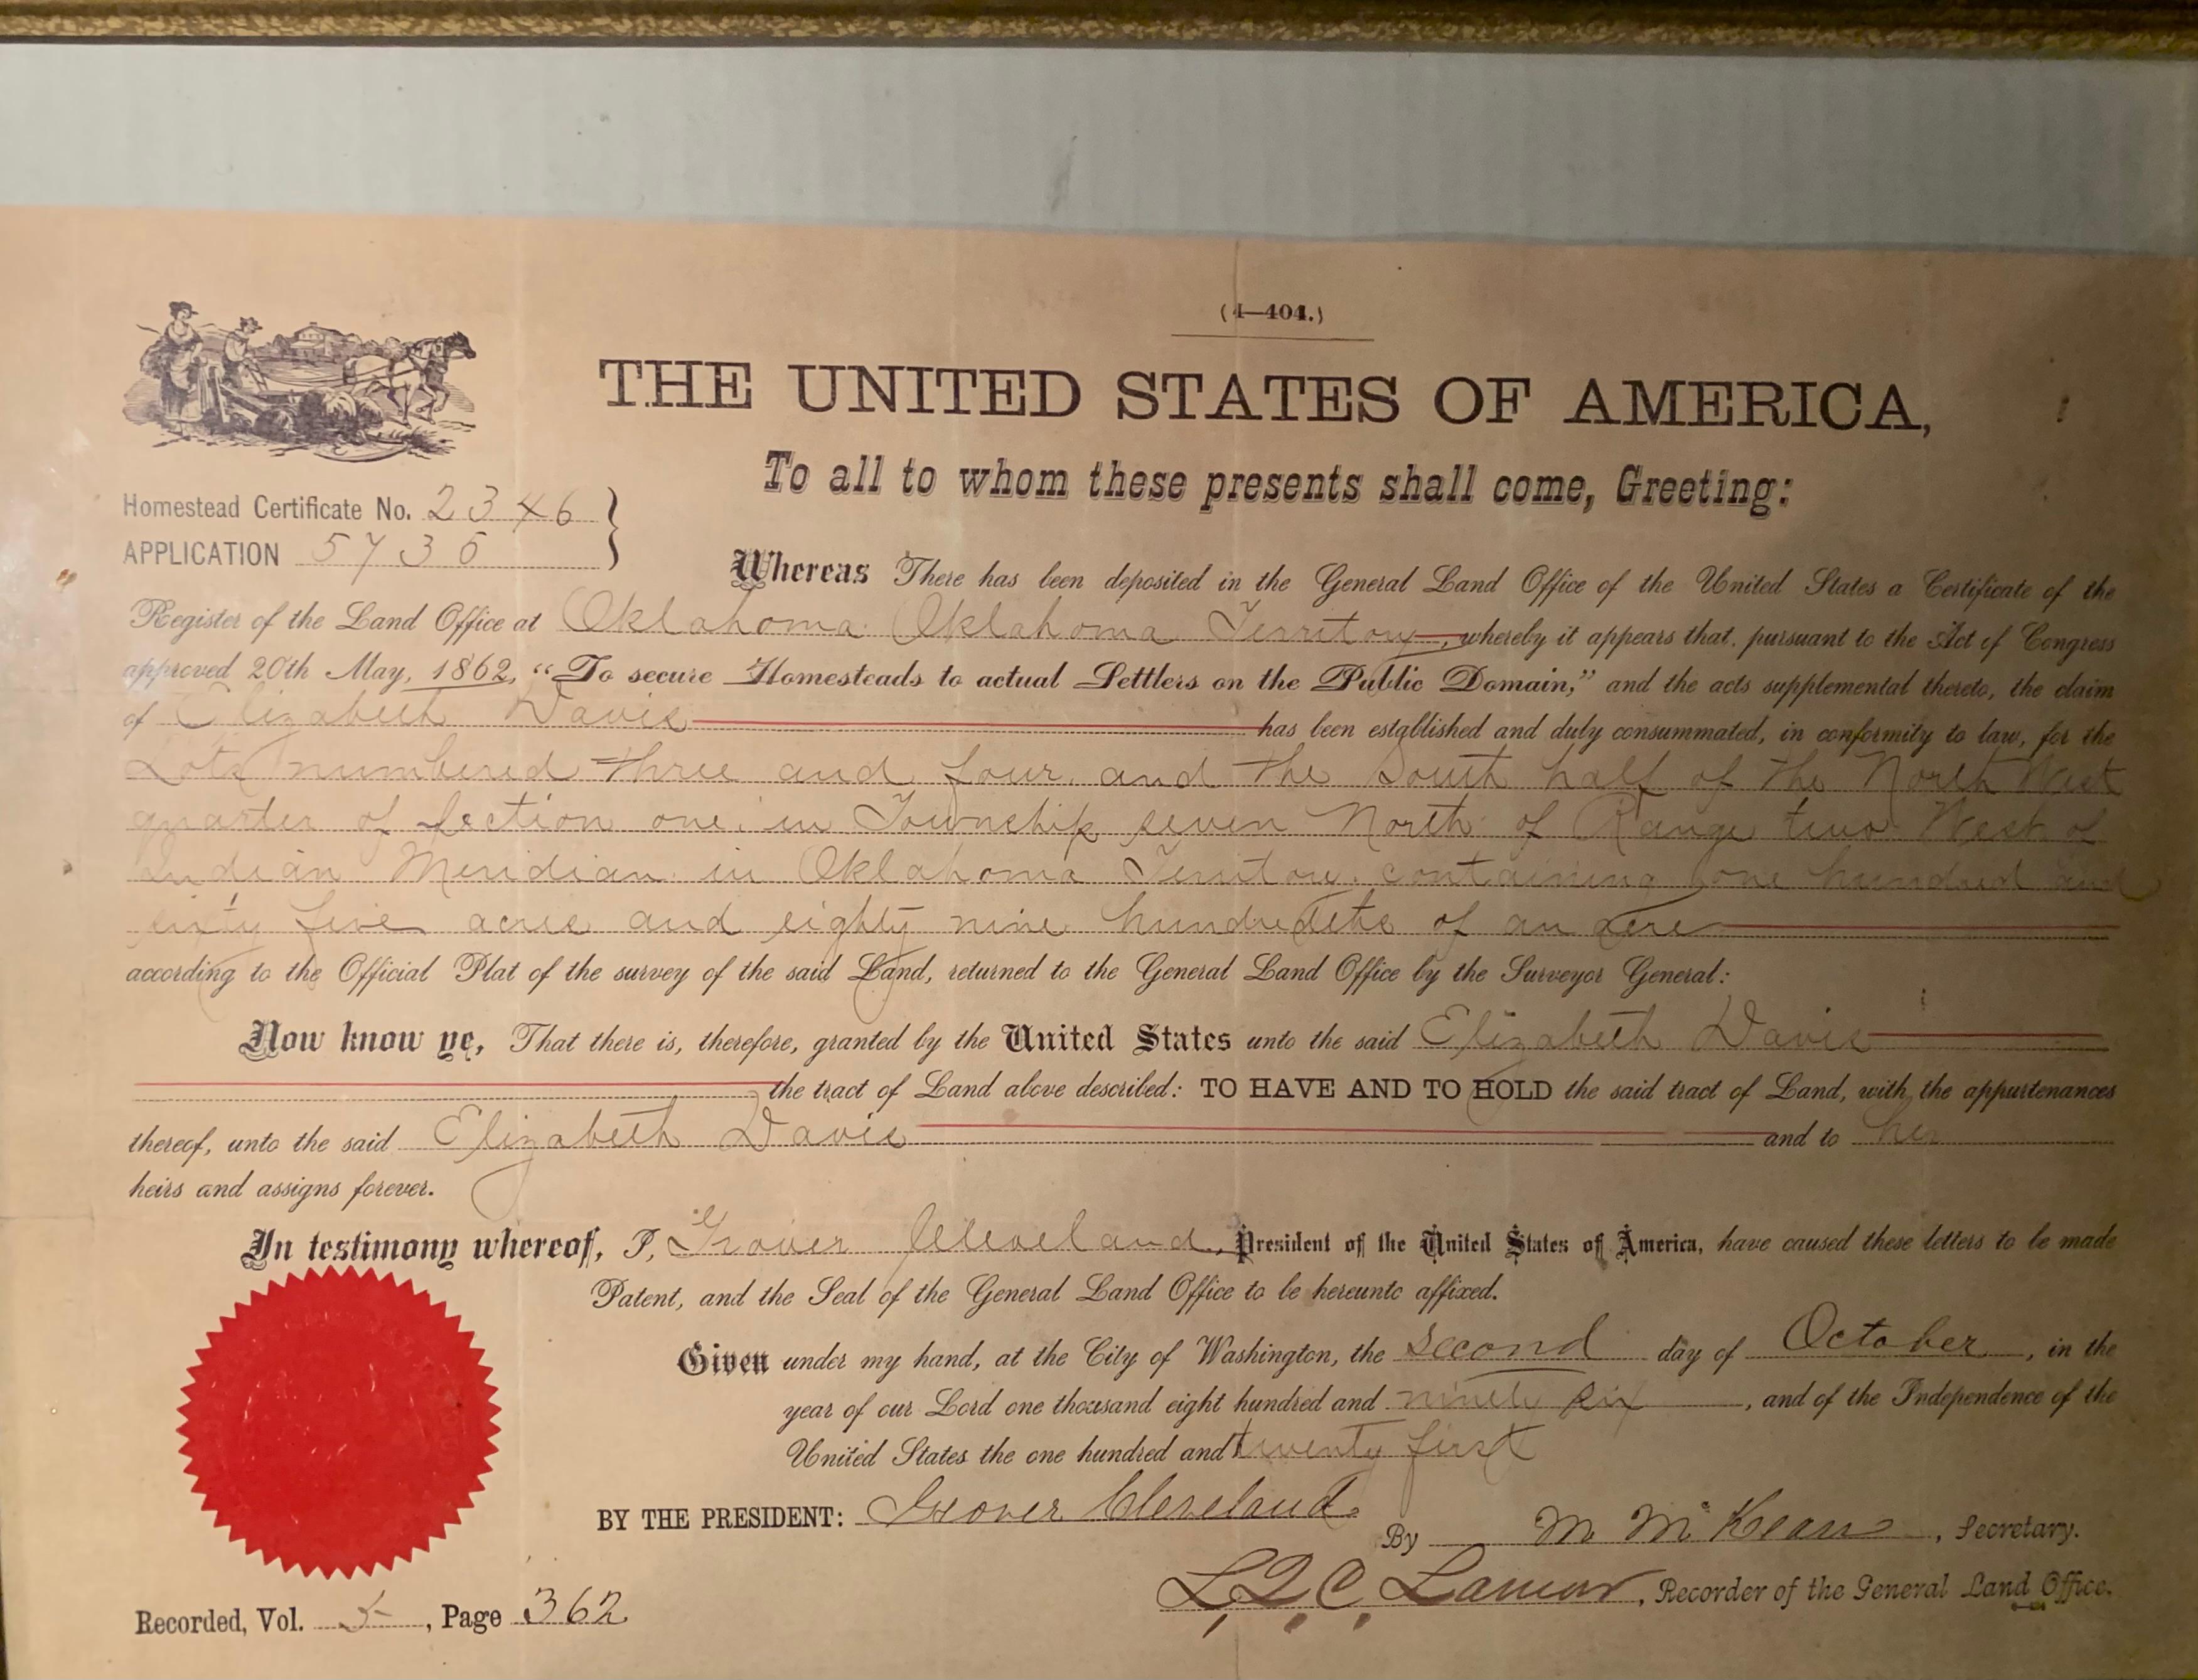 (4—404.)
THE UNITED STATES OF AMERICA,
To all to whom these presents shall come, Greeting:
Homestead Certificate No. 2346
APPLICATION 5735
Whereas There has been deposited in the General Land Office of the United States a Certificate of the
Register of the Land Office at Oklahoma Oklahoma Territory, whereby it appears that, pursuant to the Act of Congress
approved 20th May, 1862, “To secure Homesteads to actual Settlers on the Public Domain,” and the acts supplemental thereto, the claim
of Elizabeth Davis has been established and duly consummated, in conformity to law, for the
Lots numbered three and four and the South half of the North West
quarter of Section one in Township seven North of Range two West of
Indian Meridian in Oklahoma Territory containing one hundred and
sixty five acres and eighty nine hundredths of an acre
according to the Official Plat of the survey of the said Land, returned to the General Land Office by the Surveyor General:
Now know ye, That there is, therefore, granted by the United States unto the said Elizabeth Davis
the tract of Land above described: TO HAVE AND TO HOLD the said tract of Land, with the appurtenances
thereof, unto the said Elizabeth Davis and to her
heirs and assigns forever.
In testimony whereof, I, Grover Cleveland, President of the United States of America, have caused these letters to be made
Patent, and the Seal of the General Land Office to be hereunto affixed.
Given under my hand, at the City of Washington, the second day of October, in the
year of our Lord one thousand eight hundred and ninety six, and of the Independence of the
United States the one hundred and twenty first
BY THE PRESIDENT: Grover Cleveland
By M. McKean, Secretary.
L.Q.C. Lamar, Recorder of the General Land Office.
Recorded, Vol. 5, Page 362